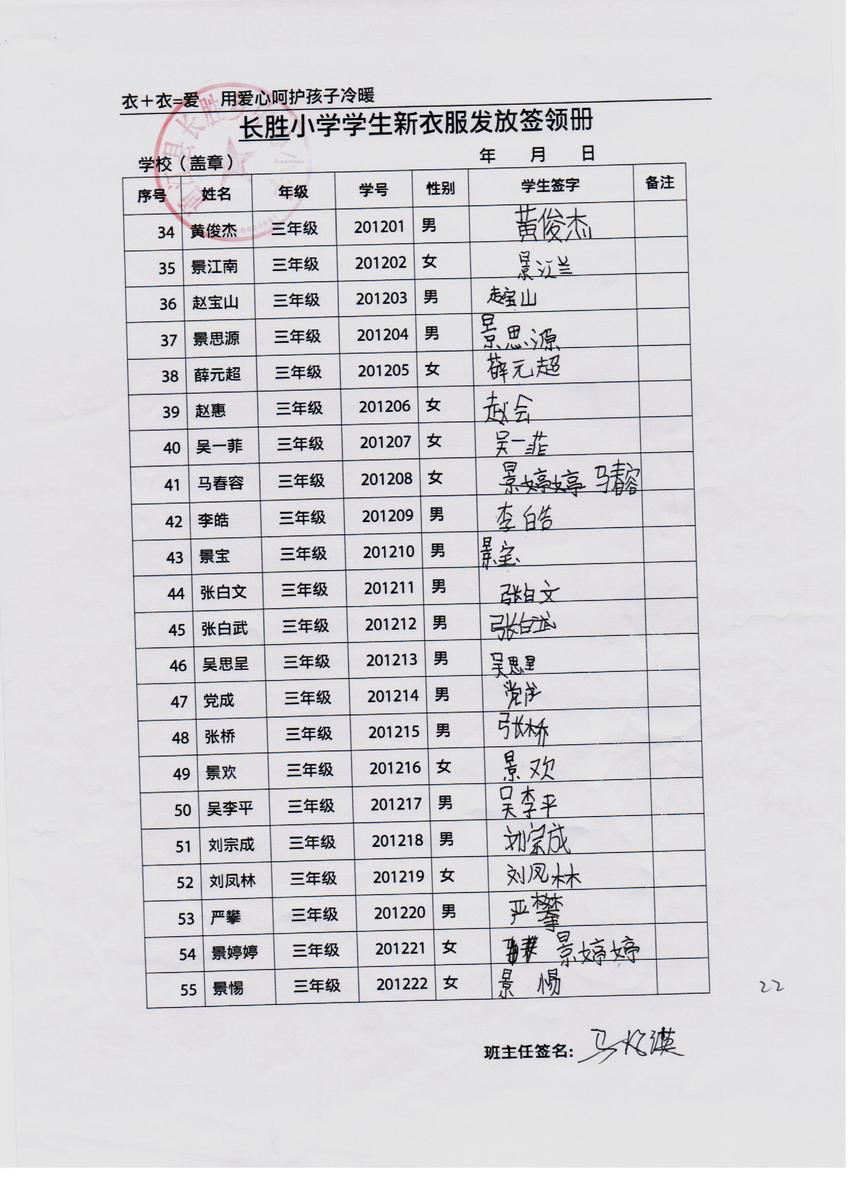 衣+衣=爱 用爱心呵护孩子冷暖
长胜小学学生新衣服发放签领册
学校（盖章） 年 月 日
序号 姓名 年级 学号 性别 学生签字 备注
34 黄俊杰 三年级 201201 男 黄俊杰
35 景江南 三年级 201202 女 景江兰
36 赵宝山 三年级 201203 男 赵宝山
37 景思源 三年级 201204 男 景思源
38 薛元超 三年级 201205 女 薛元超
39 赵惠 三年级 201206 女 赵会
40 吴一菲 三年级 201207 女 吴一菲
41 马春容 三年级 201208 女 景婷婷 马春容
42 李皓 三年级 201209 男 李皓
43 景宝 三年级 201210 男 景宝
44 张白文 三年级 201211 男 张白文
45 张白武 三年级 201212 男 张白武
46 吴思呈 三年级 201213 男 吴思呈
47 党成 三年级 201214 男 党成
48 张桥 三年级 201215 男 张桥
49 景欢 三年级 201216 女 景欢
50 吴李平 三年级 201217 男 吴李平
51 刘宗成 三年级 201218 男 刘宗成
52 刘凤林 三年级 201219 女 刘凤林
53 严攀 三年级 201220 男 严攀
54 景婷婷 三年级 201221 女 景婷婷
55 景惕 三年级 201222 女 景惕
22
班主任签名: